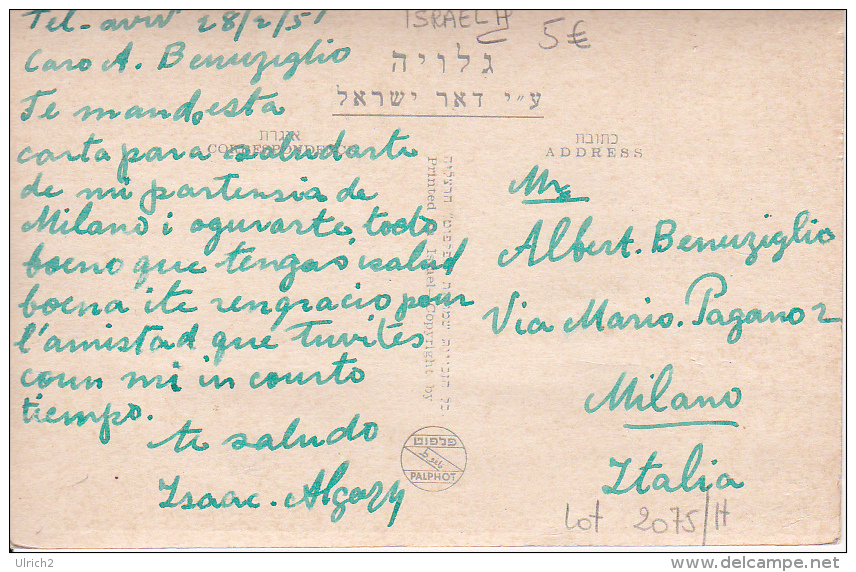 Tel-aviv 28/2/51
Caro A. Benuziglio
Te mando esta
carta para saludarte
de mi partensia de
Milano i ogurarte todo
boeno que tengas isalud
boena i te rengracio pour
l'amistad que Tuvites
coun mi in courto
tiempo.
te saludo
Isaac. Algazy
ISRAEL H
5€
גלויה
ע״י דאר ישראל
אגרת
CORRESPONDENCE
כתובת
ADDRESS
Printed in Israel - Copyright by
פלפוט
PALPHOT
Mr
Albert. Benuziglio
Via Mario. Pagano 2
Milano
Italia
Lot 2075/H
Ulrich2
delcampe.net